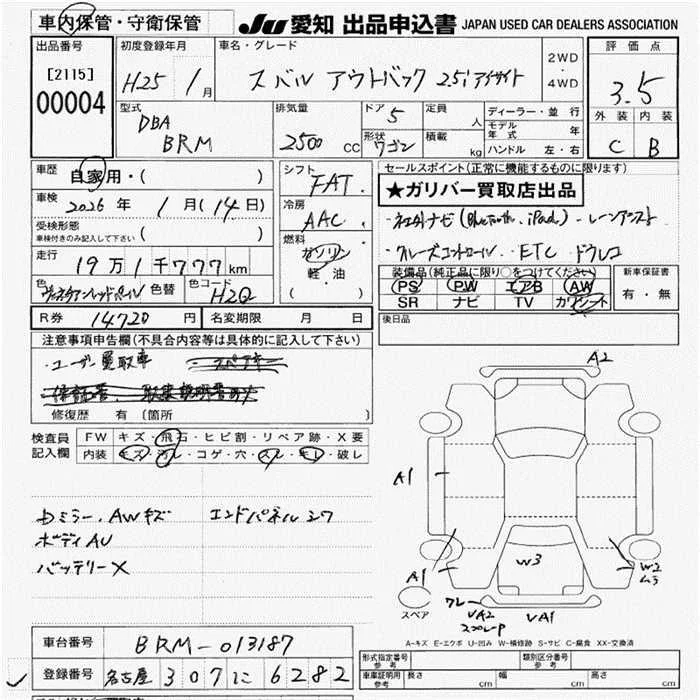 車内保管・守衛保管
JU 愛知 出品申込書 JAPAN USED CAR DEALERS ASSOCIATION
出品番号 [2115] 00004
初度登録年月 H25 / 1月
車名・グレード スバル アウトバック 2.5i アイサイト
2WD・4WD
評価点 3.5
外装 内装
C B
型式 DBA BRM
排気量 2500 CC
ドア 5
形状 ワゴン
定員 人
積載 kg
ディーラー・並行
モデル年式 年式
ハンドル 左・右
車歴 自家用・( )
車検 2026年 1月(14日)
受検形態
車検付きのみ記入して下さい ( )
走行 19万1千777km
色 ヴェネチアンレッドパール 色替 色コード H2Q
シフト FAT
冷房 AAC
燃料 ガソリン
軽・油
( )
セールスポイント(正常に機能するものに限ります)
★ガリバー買取店出品
・社外ナビ(Bluetooth, iPod)・レーンアシスト
・クルーズコントロール・ETC・ドラレコ
装備品(純正品に限り○をつけてください)
PS PW エアB AW
SR ナビ TV カワシート
新車保証書
有・無
R券 14720円 名変期限 月 日
後日品
注意事項申告欄(不具合内容等は具体的に記入して下さい)
・ユーザー買取車 スペアキー
修復歴 有 〔箇所 〕
検査員記入欄 FW キズ・飛石・ヒビ割・リペア跡・X要
内装 キズ・汚レ・コゲ・穴・スレ・キレ・破レ
ミラー、AWキズ エンドパネルシワ
ボディAU
バッテリーX
A2
A1
A1
W3
W2
ムラ
スペア
ワレ
VA2
VA1
A-キズ E-エクボ U-凹み W-補修跡 S-サビ C-腐食 XX-交換済
車台番号 BRM-013187
登録番号 名古屋 307 に 6282
形式指定番号 参考 類別区分番号 参考
車庫証明用 参考 長さ cm 幅 cm 高さ cm